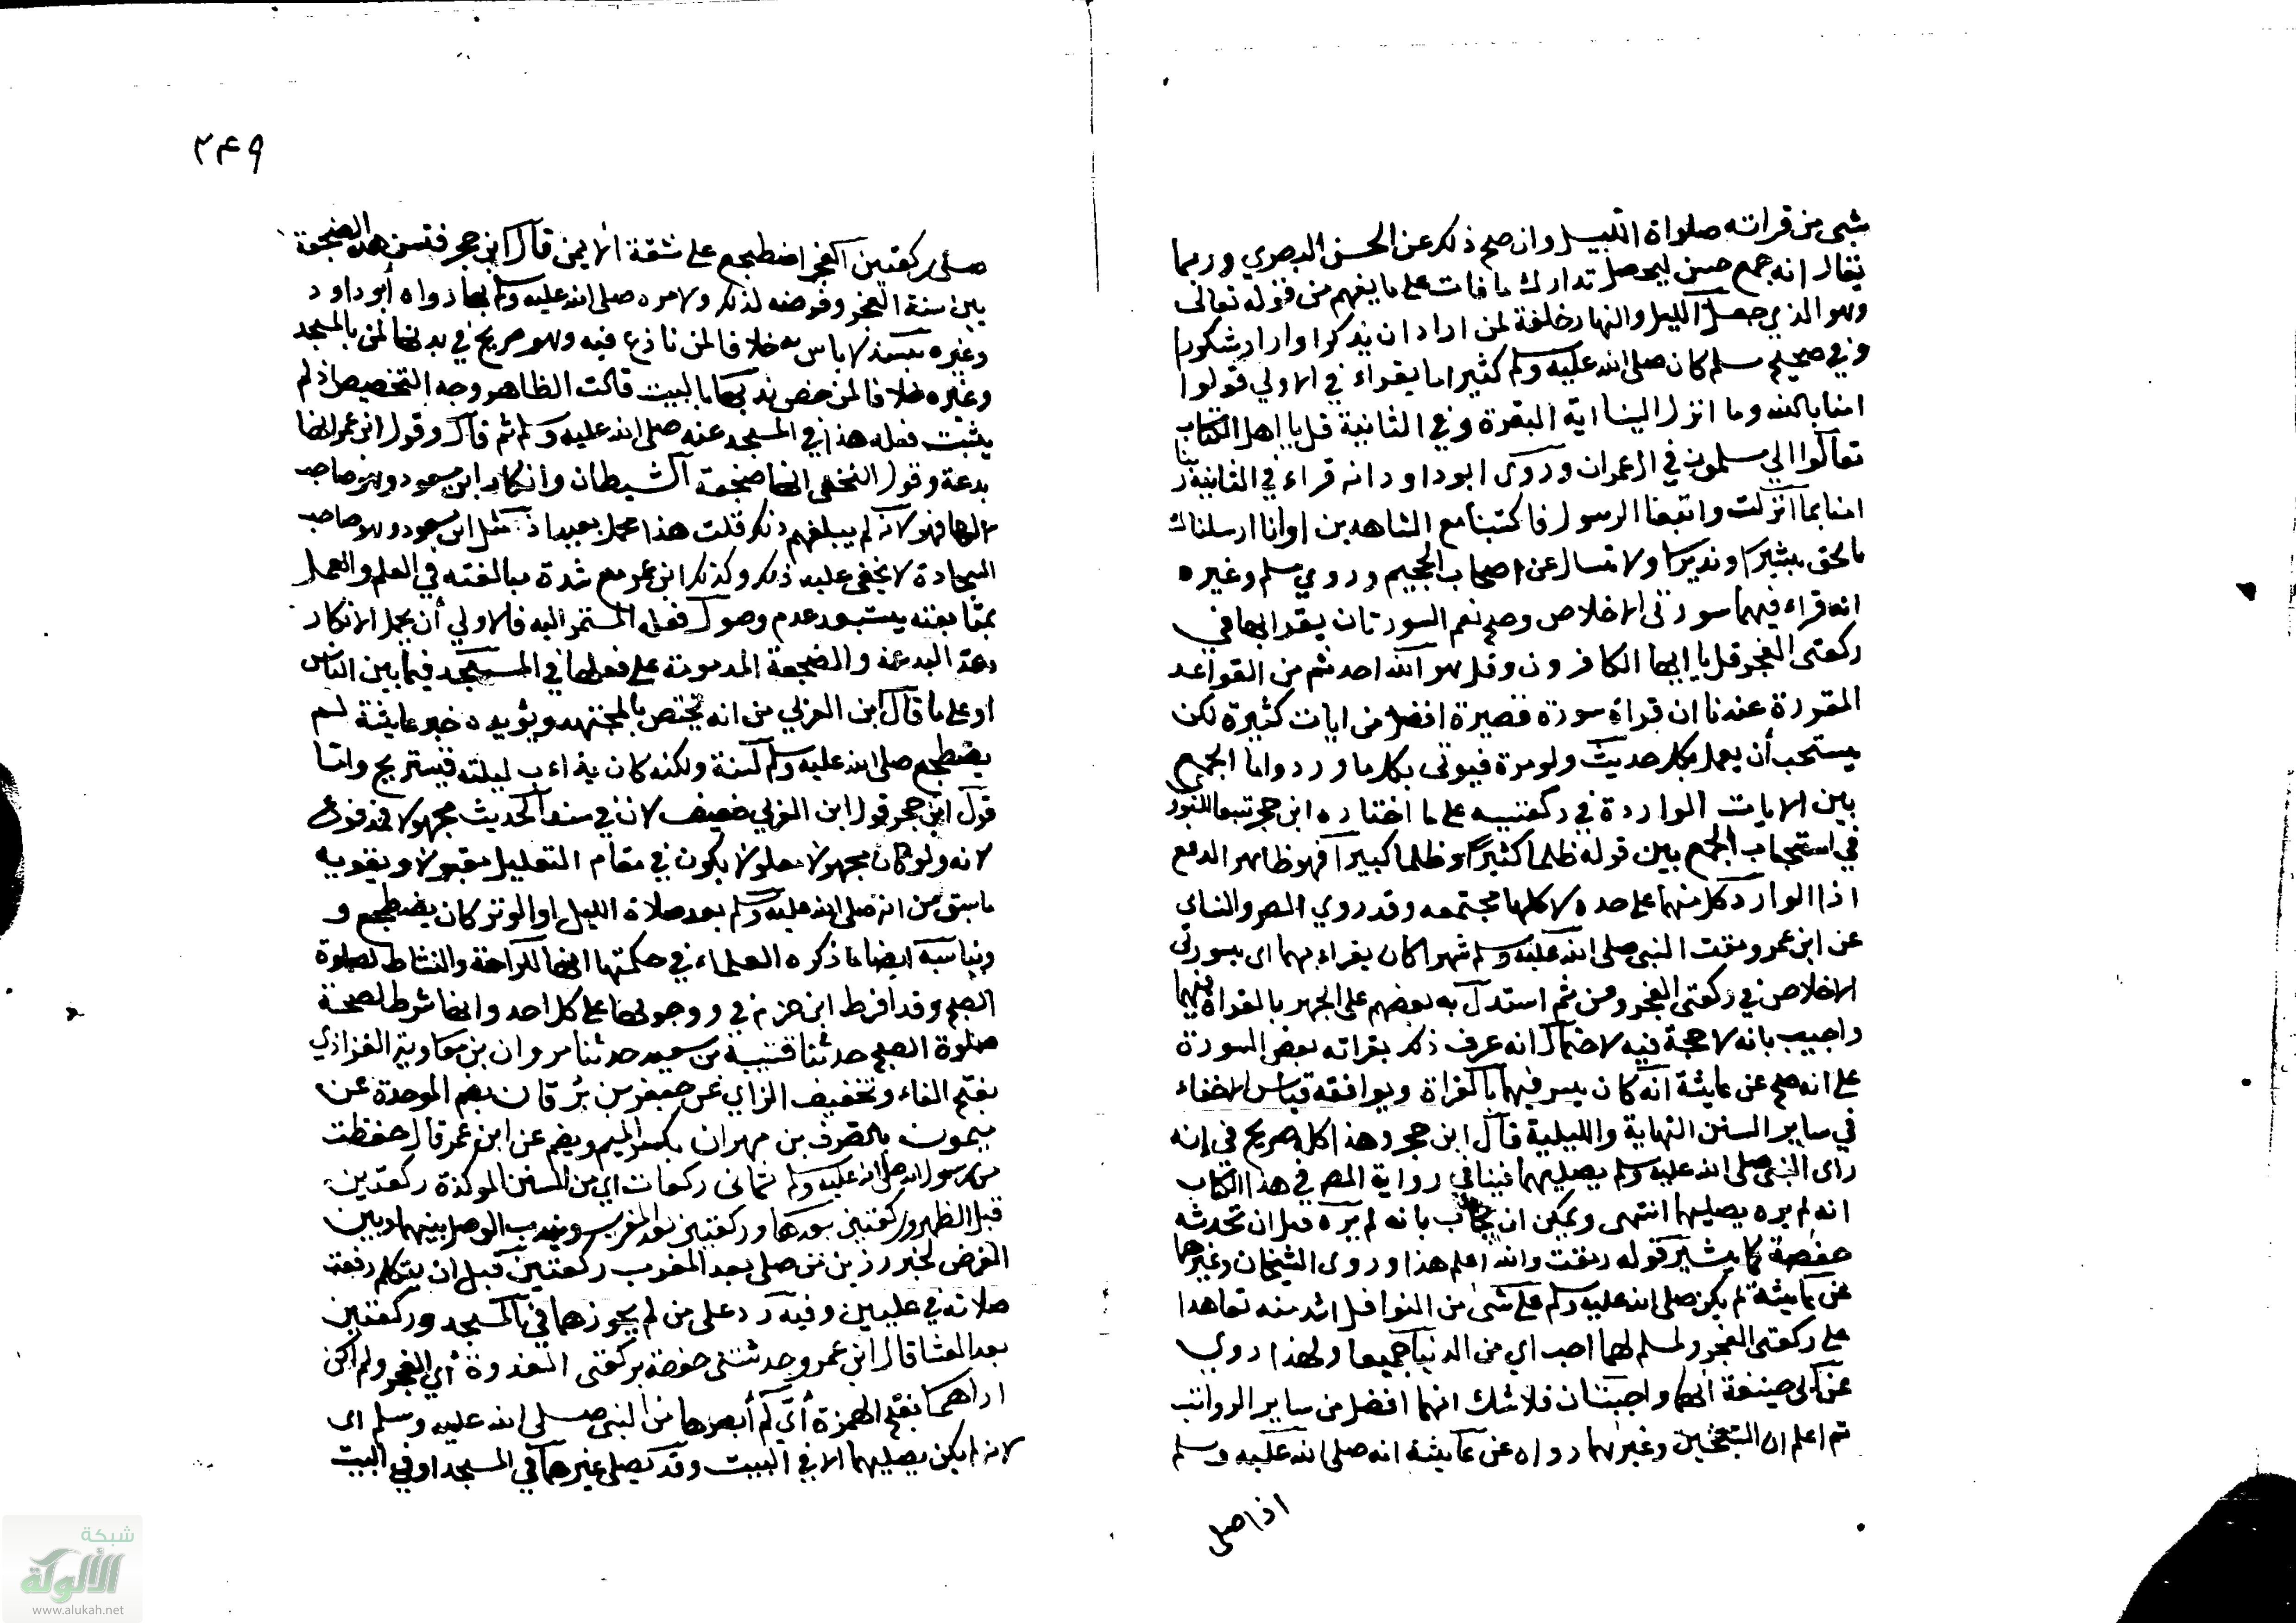 شئ من قراته صلواة الليل وان صح ذلك عن الحسن البصري وربما
يقال انه جمع حسن ليحصل تدارك ما فات على ما يفهم من قوله تعالى
وهو الذي جعل الليل والنهار خلفة لمن اراد ان يذكر او اراد شكورا
وفي صحيح مسلم كان صلى الله عليه وسلم كثيرا ما يقراء في الاولي قولوا
امنا بالله وما انزل الينا اية البقرة وفي الثانية قل يا اهل الكتاب
تعالوا الي مسلمون في ال عمران وروى ابو داود انه قراء في الثانية ربنا
امنا بما انزلت واتبعنا الرسول فاكتبنا مع الشاهدين او انا ارسلناك
بالحق بشيرا ونذيرا ولا تسال عن اصحاب الجحيم وروي مسلم وغيره
انه قراء فيهما سورتى الاخلاص وصح نعم السورتان يقرا بهما في
ركعتى الفجر قل يا ايها الكافرون وقل هو الله احد ثم من القواعد
المقررة عندنا ان قراة سورة قصيرة افضل من ايات كثيرة لكن
يستحب أن يعمل بكل حديث ولو مرة فيوتى بكل ما ورد واما الجمع
بين الايات الواردة في ركعتيه على ما اختاره ابن حجر تبعا للنووي
في استحباب الجمع بين قوله ظلما كثيرا وظلما كبيرا فهو ظاهر الدفع
اذ الوارد كل منهما على حده لا كلها مجتمعه وقد روي المص والنسائ
عن ابن عمر رمقت النبى صلى الله عليه وسلم شهرا كان يقراء بهما اى بسورتى
الاخلاص في ركعتى الفجر ومن ثم استدل به بعضهم على الجهر بالقراة فيهما
واجيب بانه لا حجة فيه لاحتمال انه عرف ذلك بقراته بعض السورة
على انه صح عن عايشة انه كان يسر فيهما بالقراة ويوافقه قياس الاخفاء
في ساير السنن النهاية والليلية قال ابن حجر وهذا كله صريح في انه
راى النبى صلى الله عليه وسلم يصليهما فينافي رواية المص في هذا الكتاب
انه لم يره يصليهما انتهى ويمكن ان يجاب بانه لم يره قبل ان تحدثه
حفصة كما يشير قوله رمقت والله اعلم هذا وروى الشيخان وغيرهما
عن عايشة لم يكن صلى الله عليه وسلم على شئ من النوافل اشد منه تعاهدا
على ركعتى الفجر ولمسلم لهما احب الي من الدنيا جميعا ولهذا روي
عن ابى حنيفة انهما واجبتان فلا شك انهما افضل من ساير الرواتب
ثم اعلم ان الشيخين وغيرهما رواه عن عايشة انه صلى الله عليه وسلم
اذا صلى
٢٤٩
صلى ركعتين الفجر اضطجع على شقة الايمن قال ابن حجر فتسن هذه الضجعة
بين سنة الفجر وفرضه لذلك ولامره صلى الله عليه وسلم بها رواه أبو داود
وغيره بسند لا باس به خلافا لمن نازع فيه وهو صريح في ندبها لمن بالمسجد
وغيره خلافا لمن خص ندبها بالبيت قلت الظاهر وجه التخصيص اذ لم
يثبت فعله هذا في المسجد عنه صلى الله عليه وسلم ثم قال وقول ابن عمر انها
بدعة وقول النخعى انها ضجعة الشيطان وانكار ابن مسعود وهو صاحب
انها فهو لانه لم يبلغهم ذلك قلت هذا محمل بعيد اذ مثل ابن مسعود وهو صاحب
السجادة لا يخفى عليه ذلك وكذلك ابن عمر مع شدة مبالغته في العلم والعمل
بمتابعته يستبعد عدم وصول فعله المستمر اليه فالاولي أن يحمل الانكار
وعد البدعة والضجعة المذمومة على فعلها في المسجد فيما بين الناس
او على ما قال ابن العزبي من انه يختص بالمجتهد ويؤيده خبر عايشة لم
يضطجع صلى الله عليه وسلم لسنة ولكنه كان يذاءب ليلته فيستريح واما
قول ابن حجر قول ابن العزبي ضعيف لان في سند الحديث مجهولا فمدفوع
لانه ولو كان مجهولا معلولا يكون في مقام التعليل مقبولا ويقويه
ما سبق من انه صلى الله عليه وسلم بعد صلاة الليل او الوتر كان يضطجع و
ويناسبه ايضا ما ذكره العلماء في حكمتها انها للراحة والنشاط لصلوة
الصبح وقد افرط ابن حزم في ووجوبها على كل احد وانها شرط لصحة
صلوة الصبح حدثنا قتيبة بن سعيد حدثنا مروان بن معاوية الفزازي
بفتح الفاء وتخفيف الزاي عن جعفر بن بُرقان بضم الموحدة عن
ميمون بالصرف بن مهران بكسر الميم ويضم عن ابن عمر قال حفظت
من رسول الله صلى الله عليه وسلم ثمانى ركعات اي من السنن الموكدة ركعتين
قبل الظهر وركعتين بعدها وركعتين بعد المغرب ويندب الوصل بينهما وبين
الفرض لخبر رزين من صلى بعد المغرب ركعتين قبل ان يتكلم رفعت
صلاته في عليين وفيه رد على من لم يجوزهما في المسجد وركعتين
بعد العشا قال ابن عمر وحدثتنى حفصة بركعتى الغدوة أي الفجر ولم اكن
اراهما بفتح الهمزة أي لم أبصرها من النبي صلى الله عليه وسلم اى
لانه لم يكن يصليهما الا في البيت وقد يصلى غيرهما في المسجد او في البيت
شبكة
الألوكة
www.alukah.net